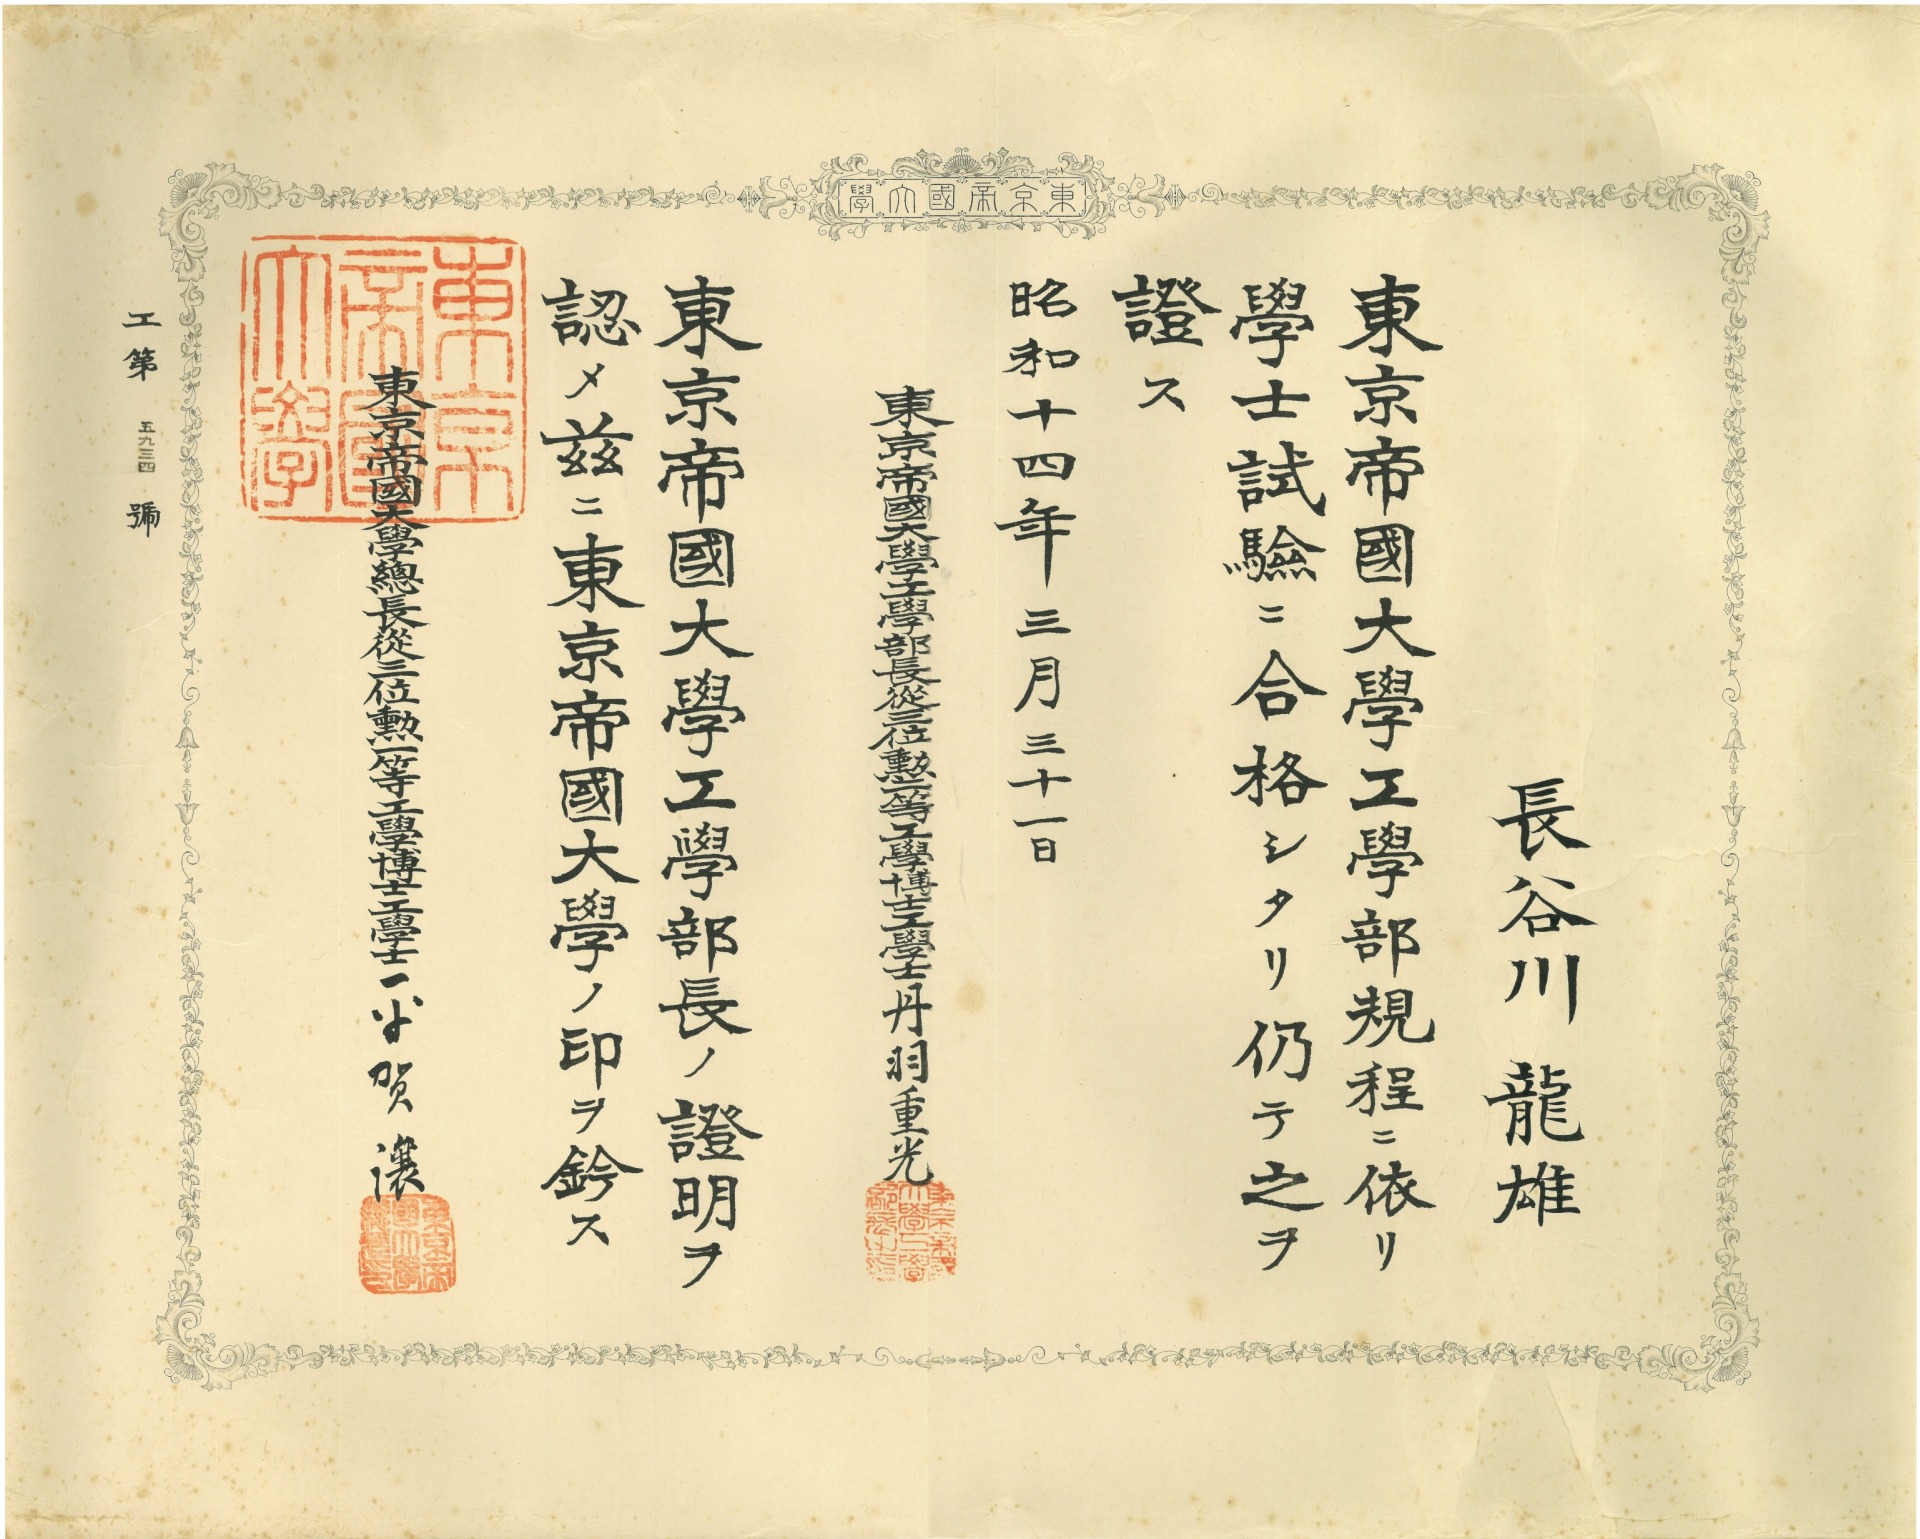 東京帝國大學
長谷川龍雄
東京帝國大學工學部規程ニ依リ
學士試驗ニ合格シタリ仍テ之ヲ
證ス
昭和十四年三月三十一日
東京帝國大學工學部長從三位勲二等工學博士工學士丹羽重光
東京帝國大學工學部長ノ證明ヲ
認メ茲ニ東京帝國大學ノ印ヲ鈐ス
東京帝國大學
東京帝國大學總長從三位勲一等工學博士工學士平賀讓
工第五九三四號